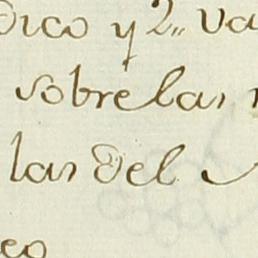 dico y 2,, va
sobre las
las del
eo